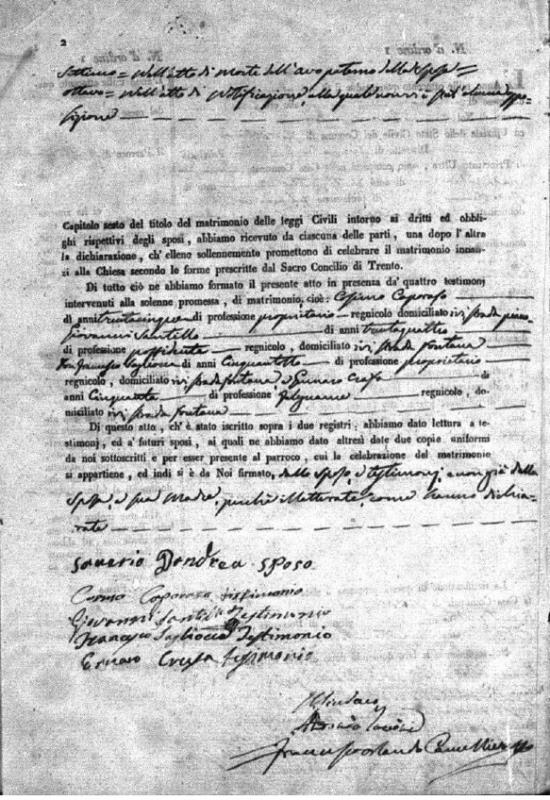 2
Settimo = Nell'atto di morte dell'avo paterno della Sposa =
ottavo = Nell'atto di Notificazione, alla quale non vi è stat' alcuna oppo-
sizione
Capitolo sesto del titolo del matrimonio delle leggi Civili intorno ai dritti ed obbli-
ghi rispettivi degli sposi, abbiamo ricevuto da ciascuna delle parti, una dopo l'altra
la dichiarazione, ch'elleno sollennemente promettono di celebrare il matrimonio innan-
zi alla Chiesa secondo le forme prescritte dal Sacro Concilio di Trento.
Di tutto ciò ne abbiamo formato il presente atto in presenza da' quattro testimonj
intervenuti alla solenne promessa, di matrimonio, cioè: Cosimo Caporaso
di anni trentacinque di professione proprietario regnicolo domiciliato ivi strada
Giovanni Santillo di anni trentaquattro
di professione possidente regnicolo, domiciliato ivi strada fontana
Don Francesco Saglioccu di anni Cinquantotto di professione proprietario
regnicolo, domiciliato ivi strada fontana e Gennaro Cresa di
anni Cinquanta di professione falegname regnicolo, do-
miciliato ivi strada fontana
Di questo atto, ch'è stato iscritto sopra i due registri, abbiamo dato lettura a te-
stimonj, ed a' futuri sposi, ai quali ne abbiamo dato altresì date due copie uniformi
da noi sottoscritti e per esser presente al parroco, cui la celebrazione del matrimonio
si appartiene, ed indi si è da Noi firmato, dallo Sposo, e testimonj, e non già dalla
Sposa, e sua Madre, perchè illetterate, come hanno dichia-
rato
Saverio Dandrea sposo
Cosmo Caporaso testimonio
Giovanni Santillo Testimonio
Francesco Saglioccu Testimonio
Ennaro Cresa testimonio
Il Sindaco
Francesco Orlando Cancelliere